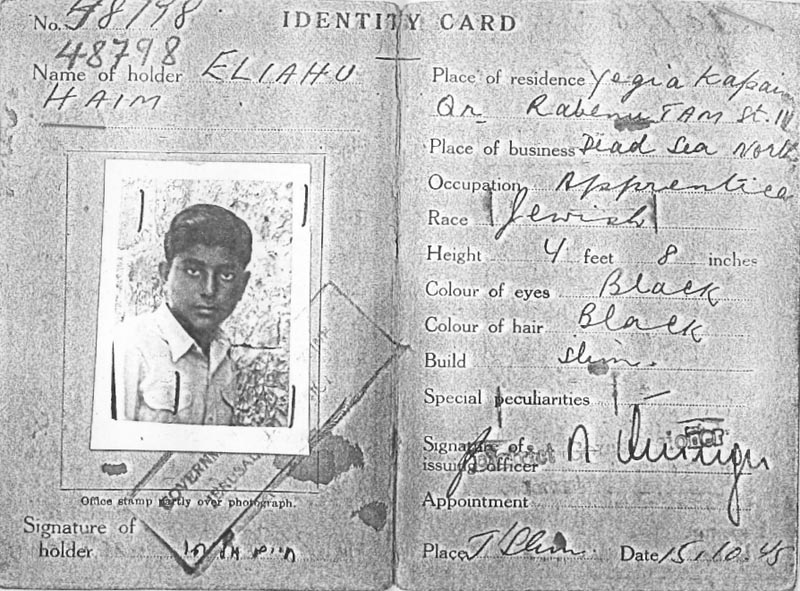 IDENTITY CARD
No. 48798
48798
Name of holder ELIAHU
HAIM
Office stamp partly over photograph.
Signature of
holder
GOVERNM
JERUSAL
Place of residence Yegia Kapaim
Qr. Rabenu TAM St.
Place of business Dead Sea North
Occupation Apprentice
Race Jewish
Height 4 feet 8 inches
Colour of eyes Black
Colour of hair Black
Build slim.
Special peculiarities —
Signature of
issuing officer
Appointment
Place J'slem. Date 15.10.45